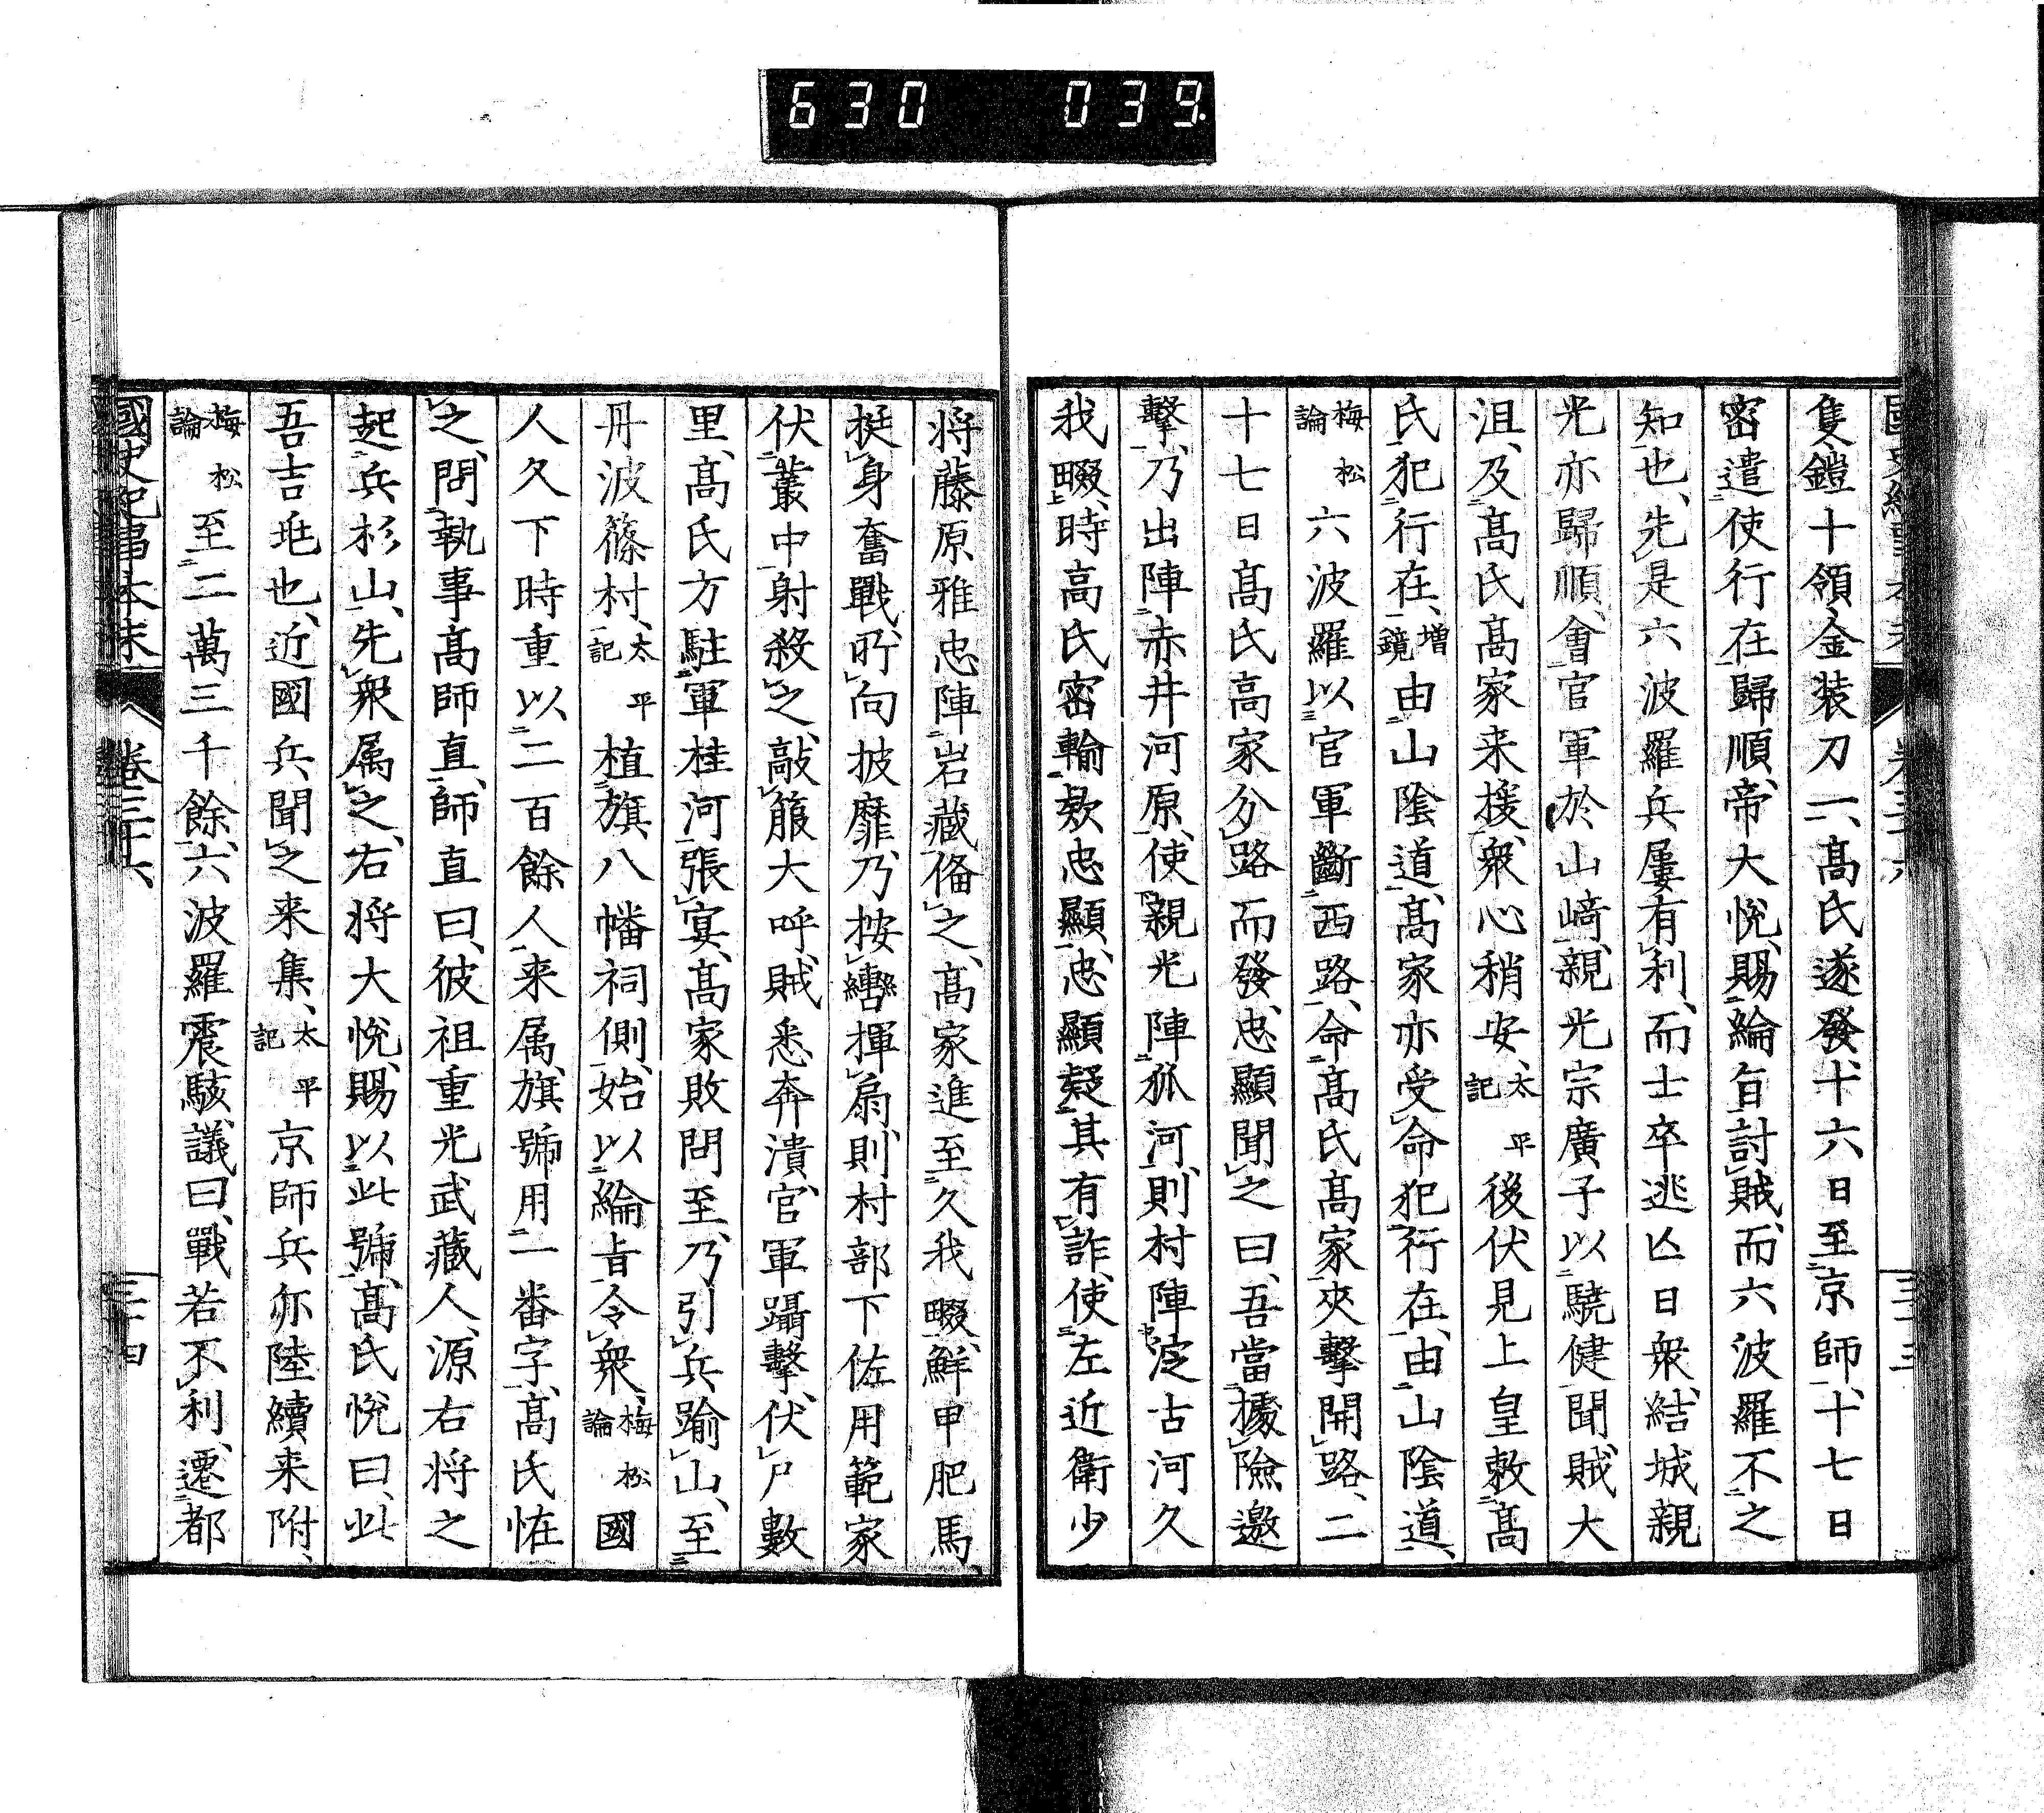 630 039
隻鎧十領金装刀一、髙氏遂發、十六日至京師、十七日
密遣使行在歸順、帝大悅、賜綸旨討賊、而六波羅不之
知也、先是六波羅兵屢有利、而士卒逃亾日衆、結城親
光亦歸順、會官軍於山﨑、親光宗廣子以驍健聞、賊大
沮、及髙氏髙家来援、衆心稍安、太平記後伏見上皇敕髙
氏犯行在、増鏡由山陰道、髙家亦受命犯行在、由山陰道、
梅松論六波羅以官軍斷西路、命髙氏髙家夾擊開路、二
十七日髙氏高家分路而發、忠顯聞之曰、吾當據險邀
擊、乃出陣赤井河原、使親光陣狐河、則村陣淀古河久
我畷、時高氏密輸欵忠顯、忠顯疑其有詐、使左近衛少
将藤原雅忠陣岩藏俻之、髙家進至久我畷、鮮甲肥馬、
挺身奮戰、所向披靡、乃按轡揮扇、則村部下佐用範家
伏叢中射殺之、敲箙大呼、賊悉奔潰、官軍躡擊、伏尸數
里、髙氏方駐軍桂河張宴、髙家敗問至、乃引兵踰山、至
丹波篠村、太平記植旗八幡祠側、始以綸旨令衆、梅松論國
人久下時重以二百餘人来属、旗號用一番字、髙氏恠
之、問執事髙師直、師直曰、彼祖重光武藏人、源右将之
起兵杉山、先衆属之、右将大悅、賜以此號、髙氏悅曰、此
吾吉兆也、近國兵聞之来集、太平記京師兵亦陸續来附、
梅松論至二萬三千餘、六波羅震駭、議曰、戰若不利、遷都
國史紀事本末 卷三十六 三十四